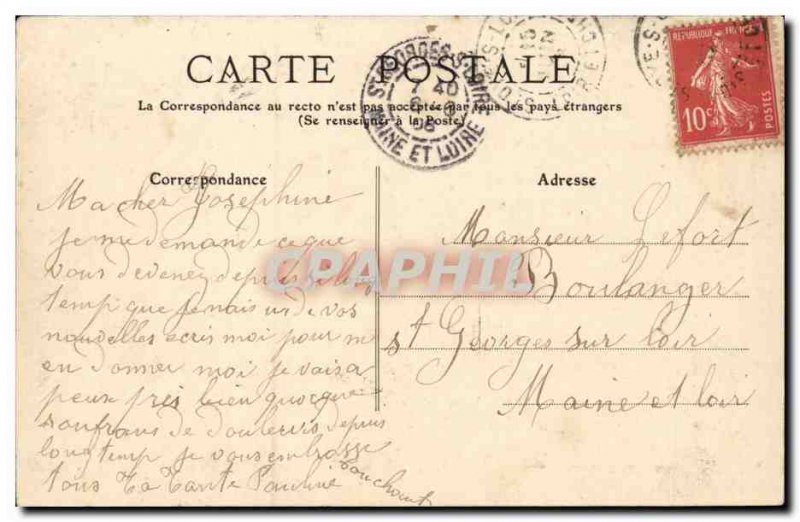 CARTE POSTALE
La Correspondance au recto n'est pas acceptée par tous les pays étrangers
(Se renseigner à la Poste)
REPUBLIQUE FRANÇAISE
10c
POSTES
ST GEORGES-S-LOIRE
7 40
08
MAINE ET LOIRE
Correspondance
Ma cher Joséphine
je me demande ce que
vous deveney depuis si long
temp que je nais us de vos
nouvelles ecris moi pour m
en donner moi je vais a
peux près bien quoque
soufrans de douleurs depuis
longtemp je vous embrasse
tous Ta Tante Pauline
Touchant
Adresse
Monsieur Lefort
Boulanger
St Georges sur loir
Maine et loir
CPAPHIL